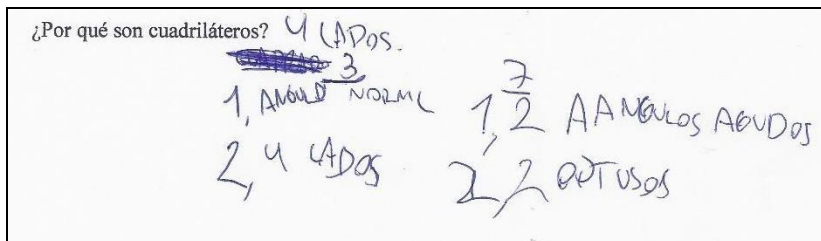 ¿Por qué son cuadriláteros? 4 LADOS.
3
1, ANGULO NORMAL
2, 4 LADOS
7
1, 2 AANGULOS AGUDOS
2, 2 OPTUSOS